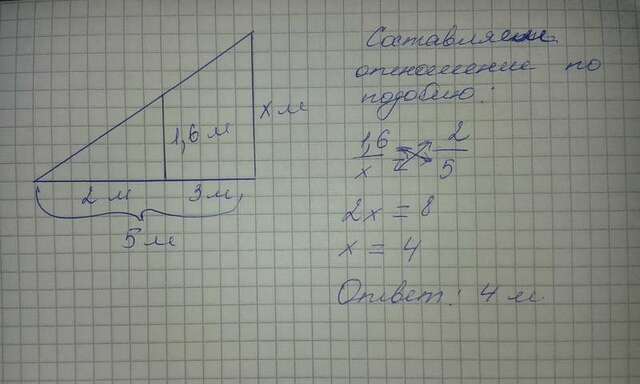 Составляем
отношение по
подобию:
1,6/x = 2/5
2x = 8
x = 4
Ответ: 4 м
1,6 м
x м
2 м 3 м
5 м